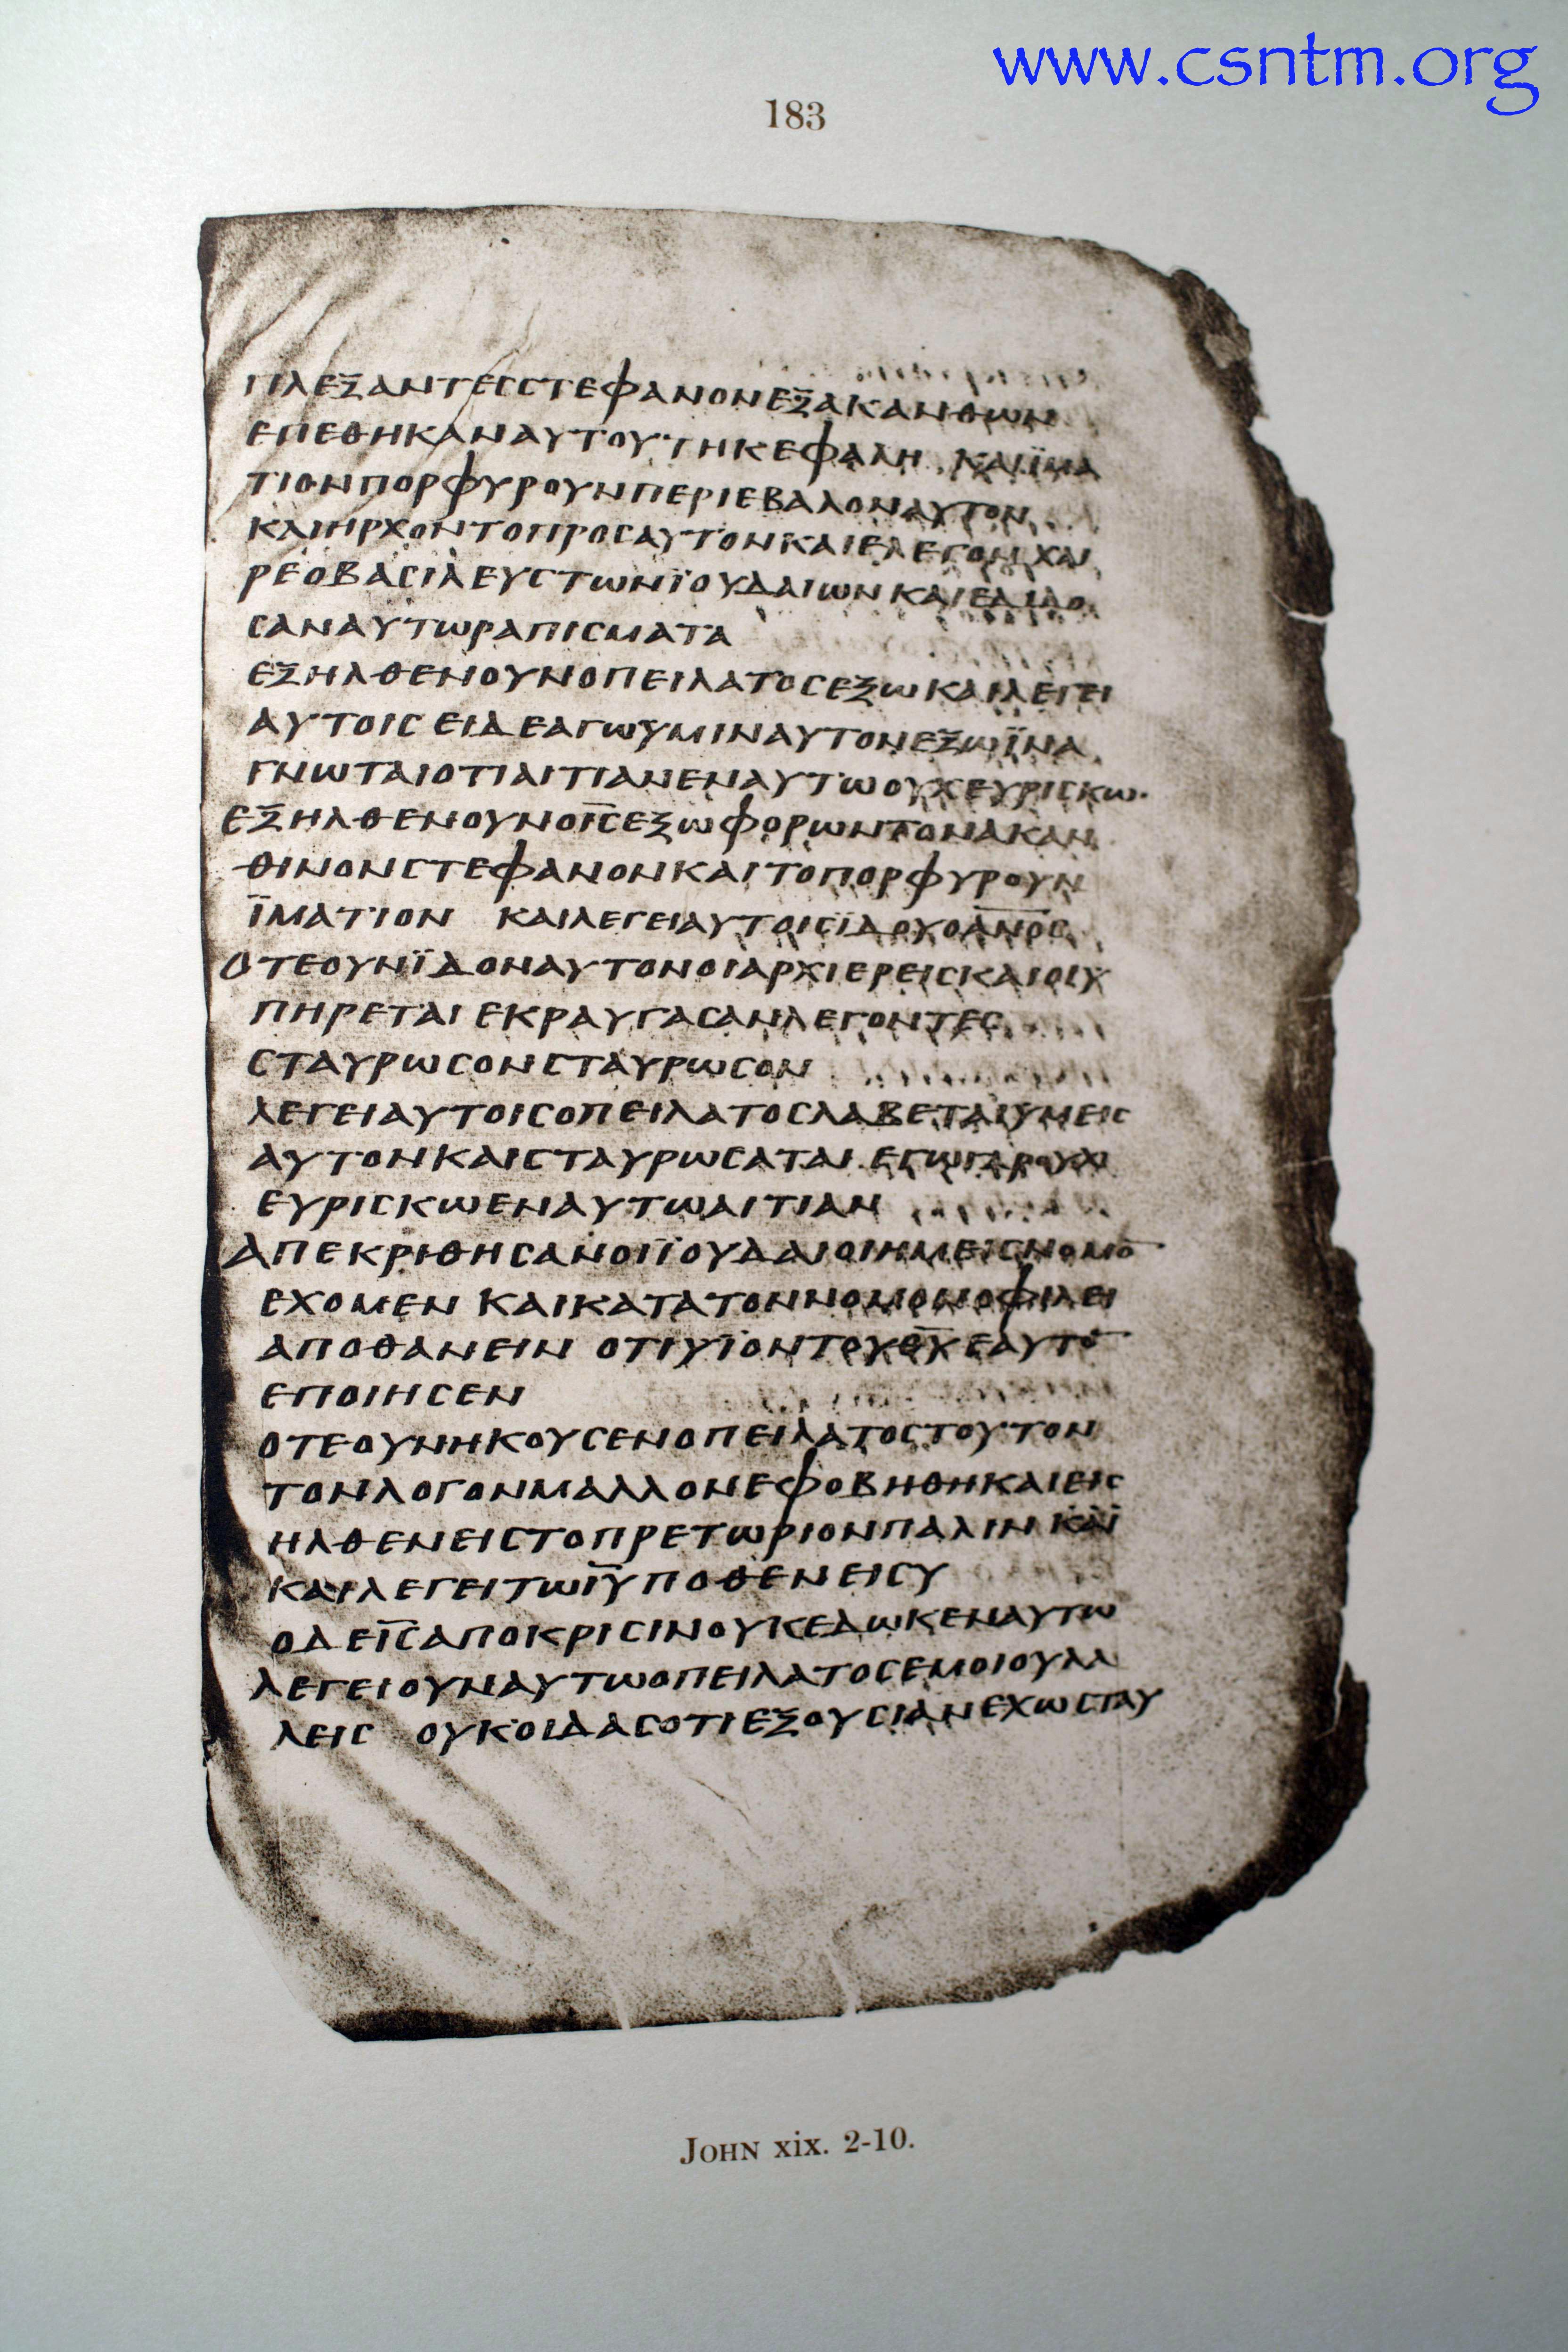 www.csntm.org
183
ΠΛΕΞΑΝΤΕССΤΕΦΑΝΟΝΕΞΑΚΑΝΘΩΝ
ΕΠΕΘΗΚΑΝΑΥΤΟΥΤΗΚΕΦΑΛΗ ΚΑΙΪΜΑ
ΤΙΟΝΠΟΡΦΥΡΟΥΝΠΕΡΙΕΒΑΛΟΝΑΥΤΟΝ
ΚΑΙΗΡΧΟΝΤΟΠΡΟϹΑΥΤΟΝΚΑΙΕΛΕΓΟΝΧΑΙ
ΡΕΟΒΑϹΙΛΕΥϹΤΩΝΪΟΥΔΑΙΩΝΚΑΙΕΔΙΔΟ
ϹΑΝΑΥΤΩΡΑΠΙϹΜΑΤΑ
ΕΞΗΛΘΕΝΟΥΝΟΠΕΙΛΑΤΟϹΕΞΩΚΑΙΛΕΓΕΙ
ΑΥΤΟΙϹ ΕΙΔΕΑΓΩΫΜΙΝΑΥΤΟΝΕΞΩΪΝΑ
ΓΝΩΤΑΙΟΤΙΑΙΤΙΑΝΕΝΑΥΤΩΟΥΧΕΥΡΙϹΚΩ·
ΕΞΗΛΘΕΝΟΥΝΟΙ̅Ϲ̅ΕΞΩΦΟΡΩΝΤΟΝΑΚΑΝ
ΘΙΝΟΝϹΤΕΦΑΝΟΝΚΑΙΤΟΠΟΡΦΥΡΟΥΝ
ΪΜΑΤΙΟΝ ΚΑΙΛΕΓΕΙΑΥΤΟΙϹΪΔΟΥΟΑ̅Ν̅Ο̅Ϲ̅
ΟΤΕΟΥΝΪΔΟΝΑΥΤΟΝΟΙΑΡΧΙΕΡΕΙϹΚΑΙΟΙΥ
ΠΗΡΕΤΑΙ ΕΚΡΑΥΓΑϹΑΝΛΕΓΟΝΤΕϹ
ϹΤΑΥΡΩϹΟΝϹΤΑΥΡΩϹΟΝ
ΛΕΓΕΙΑΥΤΟΙϹΟΠΕΙΛΑΤΟϹΛΑΒΕΤΑΙΥΜΕΙϹ
ΑΥΤΟΝΚΑΙϹΤΑΥΡΩϹΑΤΑΙ ΕΓΩΓΑΡΟΥΧ
ΕΥΡΙϹΚΩΕΝΑΥΤΩΑΙΤΙΑΝ
ΑΠΕΚΡΙΘΗϹΑΝΟΙΪΟΥΔΑΙΟΙΗΜΕΙϹΝΟΜΟ̅
ΕΧΟΜΕΝ ΚΑΙΚΑΤΑΤΟΝΝΟΜΟΝΟΦΙΛΕΙ
ΑΠΟΘΑΝΕΙΝ ΟΤΙΥΪΟΝΤΟΥΘ̅Υ̅ΕΑΥΤΟ̅
ΕΠΟΙΗϹΕΝ
ΟΤΕΟΥΝΗΚΟΥϹΕΝΟΠΕΙΛΑΤΟϹΤΟΥΤΟΝ
ΤΟΝΛΟΓΟΝΜΑΛΛΟΝΕΦΟΒΗΘΗΚΑΙΕΙϹ
ΗΛΘΕΝΕΙϹΤΟΠΡΕΤΩΡΙΟΝΠΑΛΙΝ ΚΑΙ
ΚΑΙΛΕΓΕΙΤΩΙ̅Υ̅ΠΟΘΕΝΕΙϹΥ
ΟΔΕΙ̅Ϲ̅ΑΠΟΚΡΙϹΙΝΟΥΚΕΔΩΚΕΝΑΥΤΩ
ΛΕΓΕΙΟΥΝΑΥΤΩΟΠΕΙΛΑΤΟϹΕΜΟΙΟΥΛΑ
ΛΕΙϹ ΟΥΚΟΙΔΑϹΟΤΙΕΞΟΥϹΙΑΝΕΧΩϹΤΑΥ
John xix. 2-10.